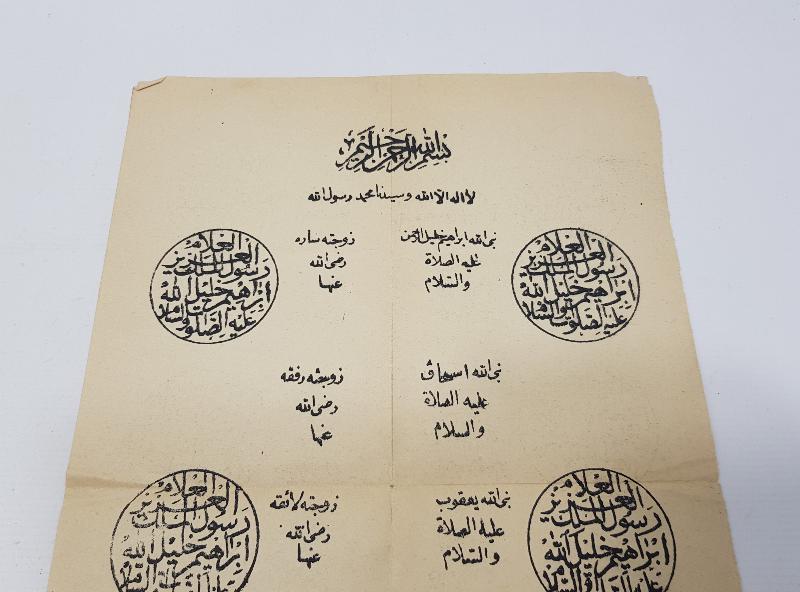 بسم الله الرحمن الرحيم
لا اله الا الله وسيدنا محمد رسول الله
نبي الله ابراهيم خليل الرحمن
عليه الصلاة
والسلام
زوجته ساره
رضى الله
عنها
العلام
العزيز
رسول الملك
ابراهيم خليل الله
عليه الصلوة والسلام
العلام
العزيز
رسول الملك
ابراهيم خليل الله
عليه الصلوة والسلام
نبي الله اسحاق
عليه الصلاة
والسلام
زوجته رفقه
رضى الله
عنها
نبي الله يعقوب
عليه الصلاة
والسلام
زوجته لائقه
رضى الله
عنها
العلام
العزيز
رسول الملك
ابراهيم خليل الله
العلام
العزيز
رسول الملك
ابراهيم خليل الله